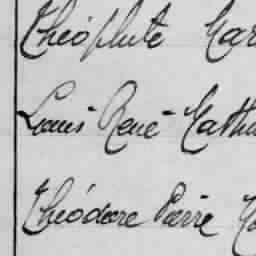 Théophile Mar
Louis René Mathu
Théodore Pierre Ma